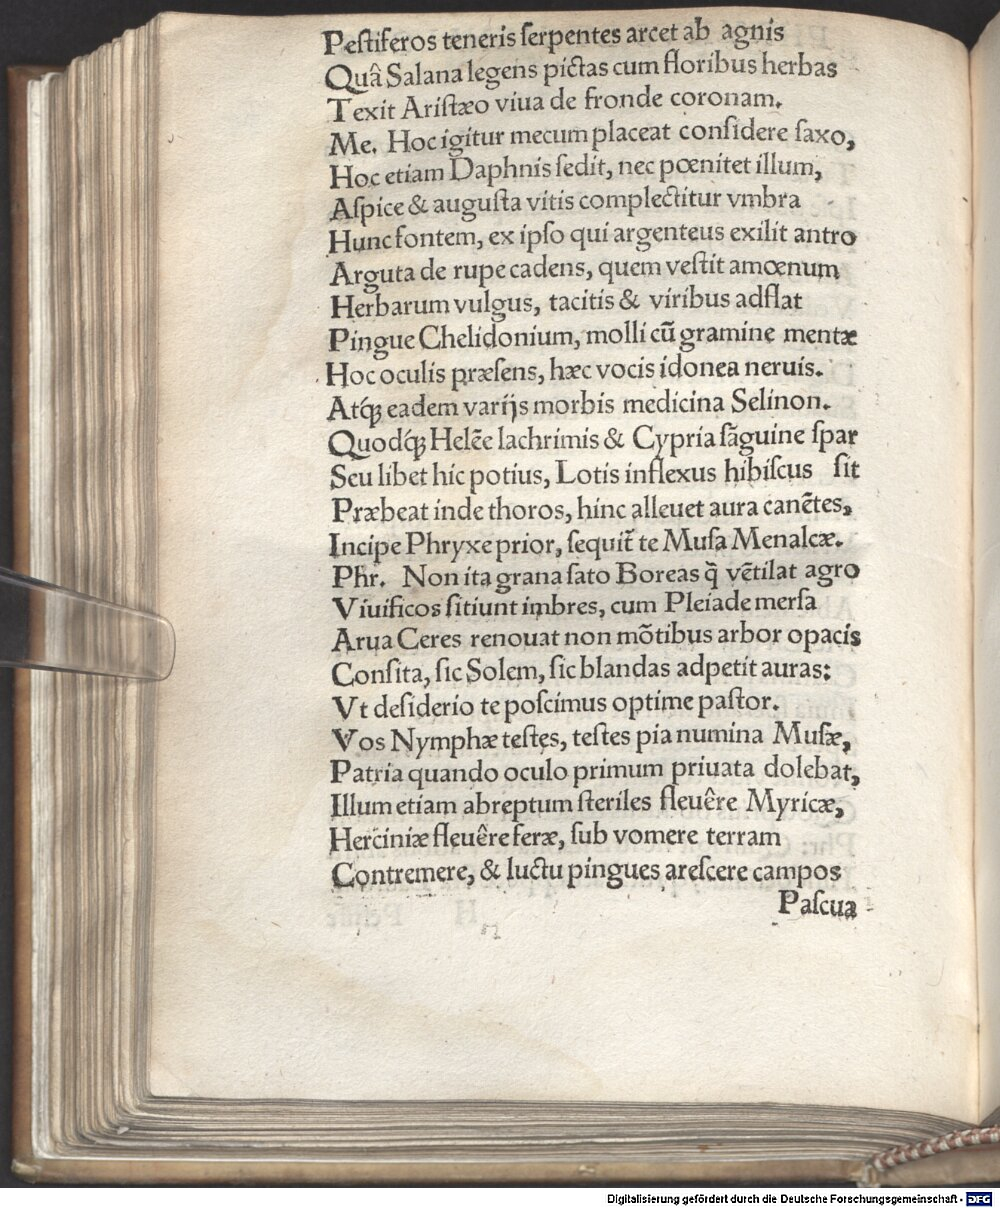 Peſtiferos teneris ſerpentes arcet ab agnis
Quâ Salana legens pictas cum floribus herbas
Texit Ariſtæo viua de fronde coronam.
Me. Hoc igitur mecum placeat conſidere ſaxo,
Hoc etiam Daphnis ſedit, nec pœnitet illum,
Aſpice & auguſta vitis complectitur vmbra
Hunc fontem, ex ipſo qui argenteus exilit antro
Arguta de rupe cadens, quem veſtit amœnum
Herbarum vulgus, tacitis & viribus adflat
Pingue Chelidonium, molli cū gramine mentæ
Hoc oculis præſens, hæc vocis idonea neruis.
Atq́ꝫ eadem varijs morbis medicina Selinon.
Quodq́ꝫ Helēe lachrimis & Cypria ſāguine ſpar
Seu libet hic potius, Lotis inflexus hibiſcus ſit
Præbeat inde thoros, hinc alleuet aura canētes,
Incipe Phryxe prior, ſequit̄ te Muſa Menalcæ.
Phr. Non ita grana ſato Boreas q̄ vētilat agro
Viuificos ſitiunt imbres, cum Pleiade merſa
Arua Ceres renouat non mōtibus arbor opacis
Conſita, ſic Solem, ſic blandas adpetit auras:
Vt deſiderio te poſcimus optime paſtor.
Vos Nymphæ teſtes, teſtes pia numina Muſæ,
Patria quando oculo primum priuata dolebat,
Illum etiam abreptum ſteriles fleuêre Myricæ,
Herciniæ fleuêre feræ, ſub vomere terram
Contremere, & luctu pingues areſcere campos
Paſcua
Digitalisierung gefördert durch die Deutsche Forschungsgemeinschaft - DFG